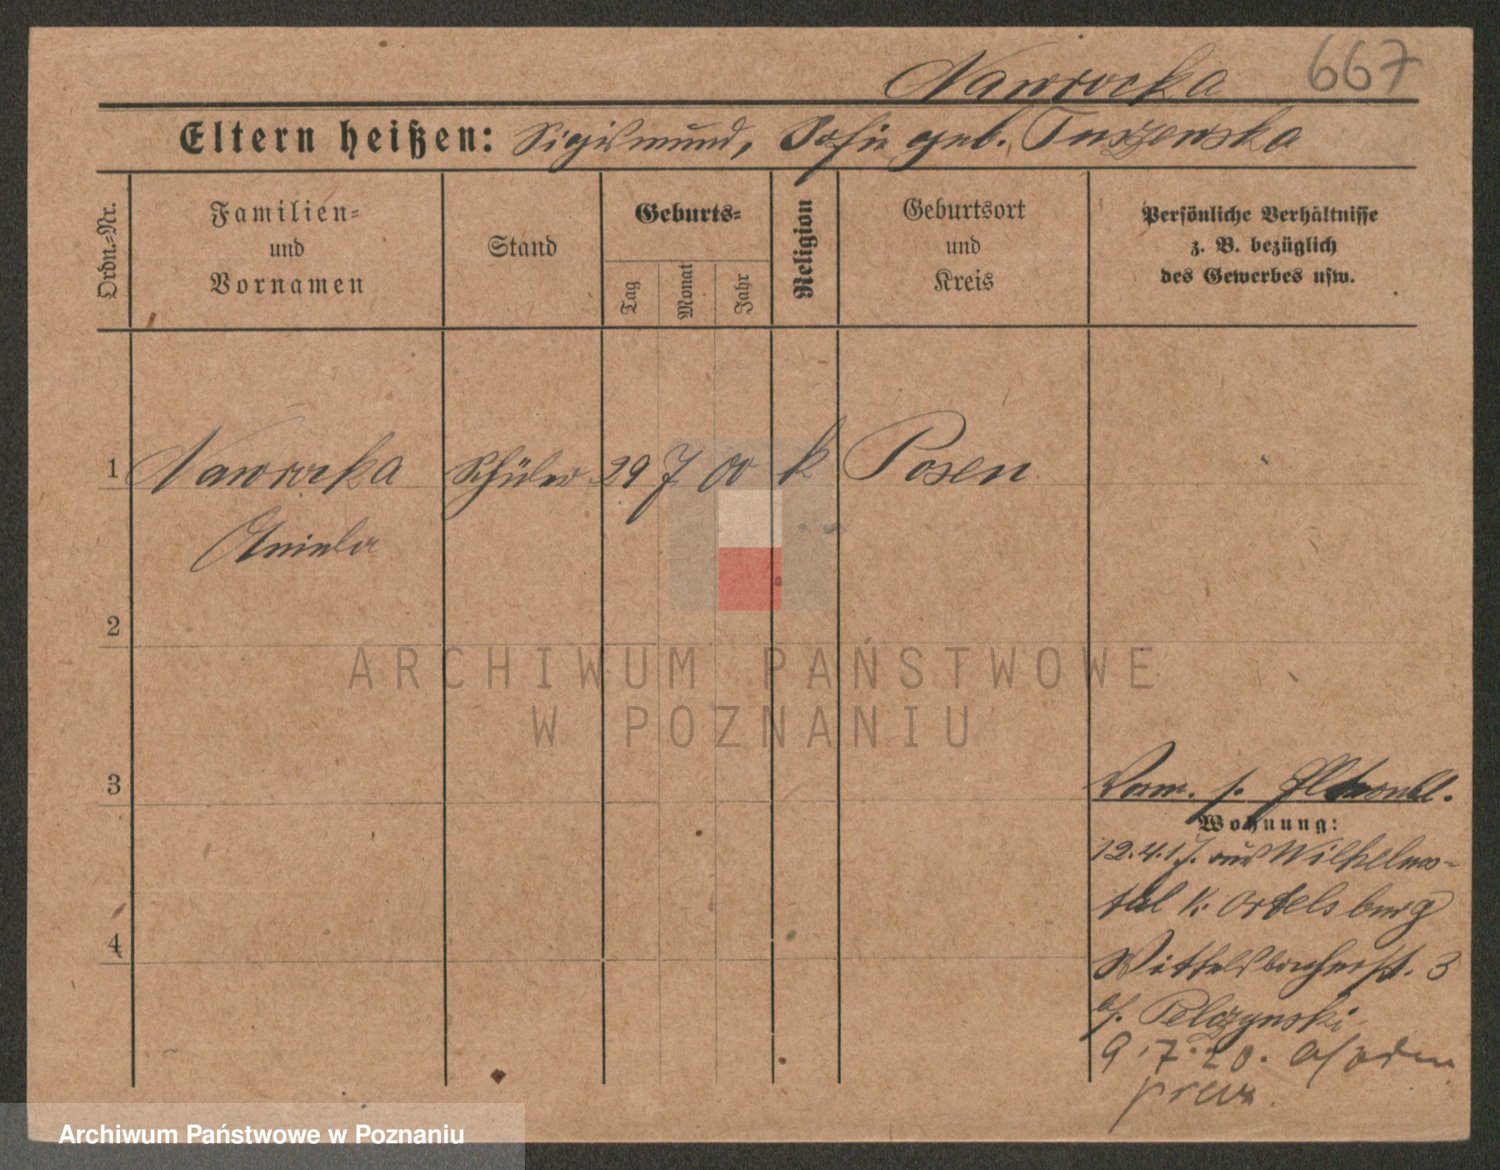 Nawrocka 667
Eltern heißen: Sigismund, Sofie geb. Tuszewska
Ordn.-Nr.
Familien-
und
Vornamen
Stand
Geburts-
Tag
Monat
Jahr
Religion
Geburtsort
und
Kreis
Persönliche Verhältnisse
z. B. bezüglich
des Gewerbes usw.
1 Nawrocka Schüler 29 7 00 k Posen
Aniela
2
ARCHIWUM PAŃSTWOWE
W POZNANIU
3
Vorm. s.
Wohnung:
12.4.17. aus Wilhelms-
tal K. Ortelsburg
4
Wittelsbacherst. 3
b/. Pelczynski
9.7.20.
Archiwum Państwowe w Poznaniu